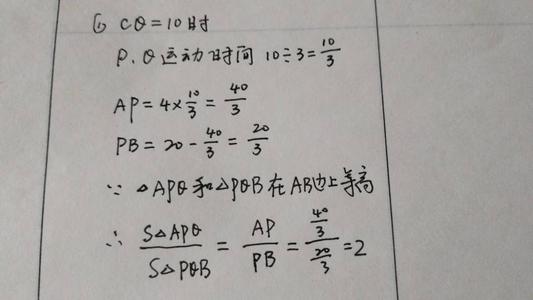 (1) CQ=10时
P、Q运动时间 10÷3=10/3
AP=4×10/3=40/3
PB=20-40/3=20/3
∵ △APQ和△PQB在AB边上等高
∴ S△APQ/S△PQB=AP/PB=(40/3)/(20/3)=2